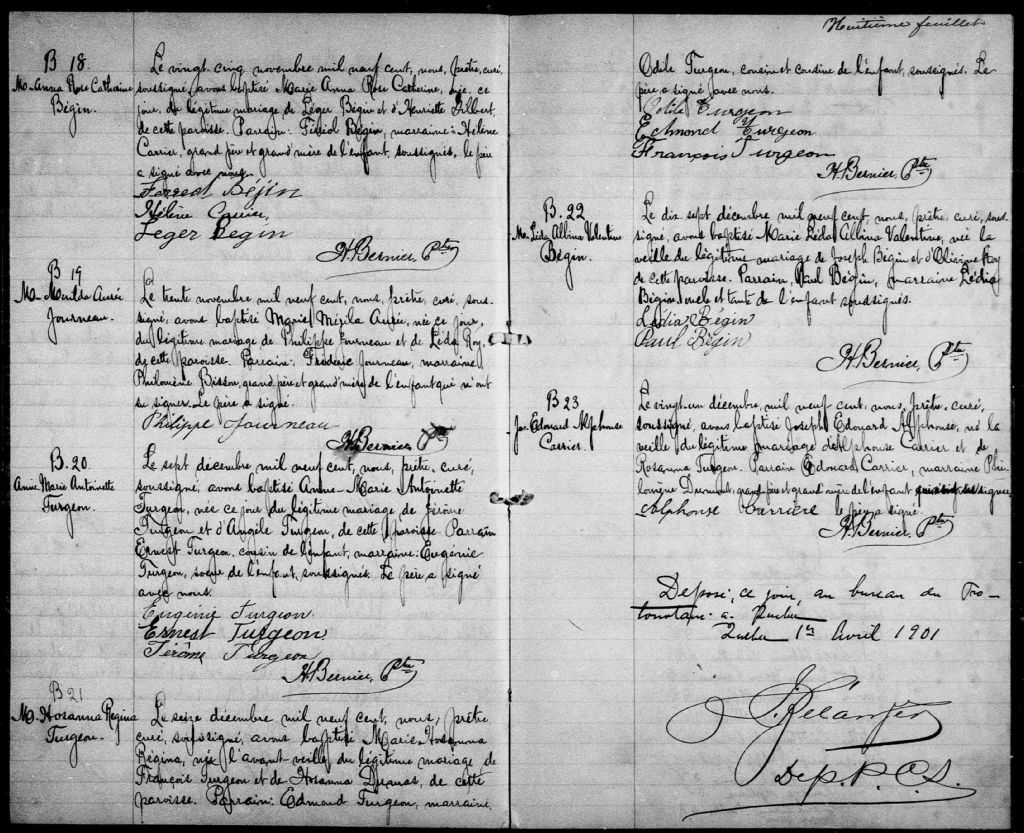 Huitième feuillet
B 18.
M-Anna Rose Catherine
Bégin.
Le vingt-cinq novembre mil neuf cent, nous, prêtre, curé,
soussigné avons baptisé Marie Anna Rose Catherine, née, ce
jour, du légitime mariage de Léger Bégin et d'Henriette Gilbert,
de cette paroisse. Parrain: Bégin, marraine: Hélène
Carrier, grand père et grand'mère de l'enfant, soussignés, le père
a signé avec nous.
Bégin
Hélène Carrier,
Leger Begin
H. Bernier, Ptre
B 19
M- Aurée
Journeau.
Le trente novembre mil neuf cent, nous, prêtre, curé, sous-
signé, avons baptisé Marie Mézila Aurée, née ce jour,
du légitime mariage de Philippe Journeau et de Léda Roy,
de cette paroisse. Parrain: Fréderic Journeau, marraine
Philomène Bisson, grand père et grand'mère de l'enfant qui n'ont
su signer. Le père a signé.
Philippe Journeau
H. Bernier Ptre
B. 20.
Anne-Marie Antoinette
Turgeon.
Le sept decembre mil neuf cent, nous, prêtre, curé,
soussigné, avons baptisé Anne-Marie Antoinette
Turgeon, née ce jour du légitime mariage de Jérôme
Turgeon et d'Angèle Turgeon, de cette paroisse Parrain
Ernest Turgeon, cousin de l'enfant, marraine: Eugénie
Turgeon, soeur de l'enfant, soussignés. Le père a signé
avec nous.
Eugénie Turgeon
Ernest Turgeon
Jérôme Turgeon
H. Bernier, Ptre
B 21
M. Hosanna Régina
Turgeon.
Le seize décembre mil neuf cent, nous, prêtre
curé, soussigné, avons baptisé Marie-Hosanna
Régina, née l'avant-veille du légitime mariage de
François Turgeon et de Hosanna Dumas, de cette
paroisse. Parrain: Edmond Turgeon, marraine,
Odile Turgeon, cousin et cousine de l'enfant, soussignés. Le
père a signé avec nous.
Odile Turgeon
Edmond Turgeon
François Turgeon
H. Bernier, Ptre
B. 22
M. Léda Albina Valentine
Bégin.
Le dix sept décembre mil neuf cent, nous, prêtre, curé, sous-
signé, avons baptisé Marie Léda Albina Valentine, née la
veille du légitime mariage de Joseph Bégin et d'Olivine Roy
de cette paroisse. Parrain, Paul Bégin, marraine Lédia
Bégin oncle et tante de l'enfant soussignés.
Lédia Bégin
Paul Bégin
H. Bernier, Ptre
B 23
Jos. Edouard Alphonse
Carrier.
Le vingt-un décembre, mil neuf cent, nous, prêtre, curé,
soussigné, avons baptisé Joseph Edouard Alphonse, né la
veille du légitime mariage d'Alphonse Carrier et de
Rosanna Turgeon. Parrain Edouard Carrier, marraine Phi-
lomène Dumont, grand-père et grand'mère de l'enfant signer
Alphonse Carriere le père a signé.
H. Bernier, Ptre
Déposé, ce jour, au bureau du Pro-
tonotaire à Québec
Québec 1er Avril 1901
J. Bélanger
Dep. P. C. S.